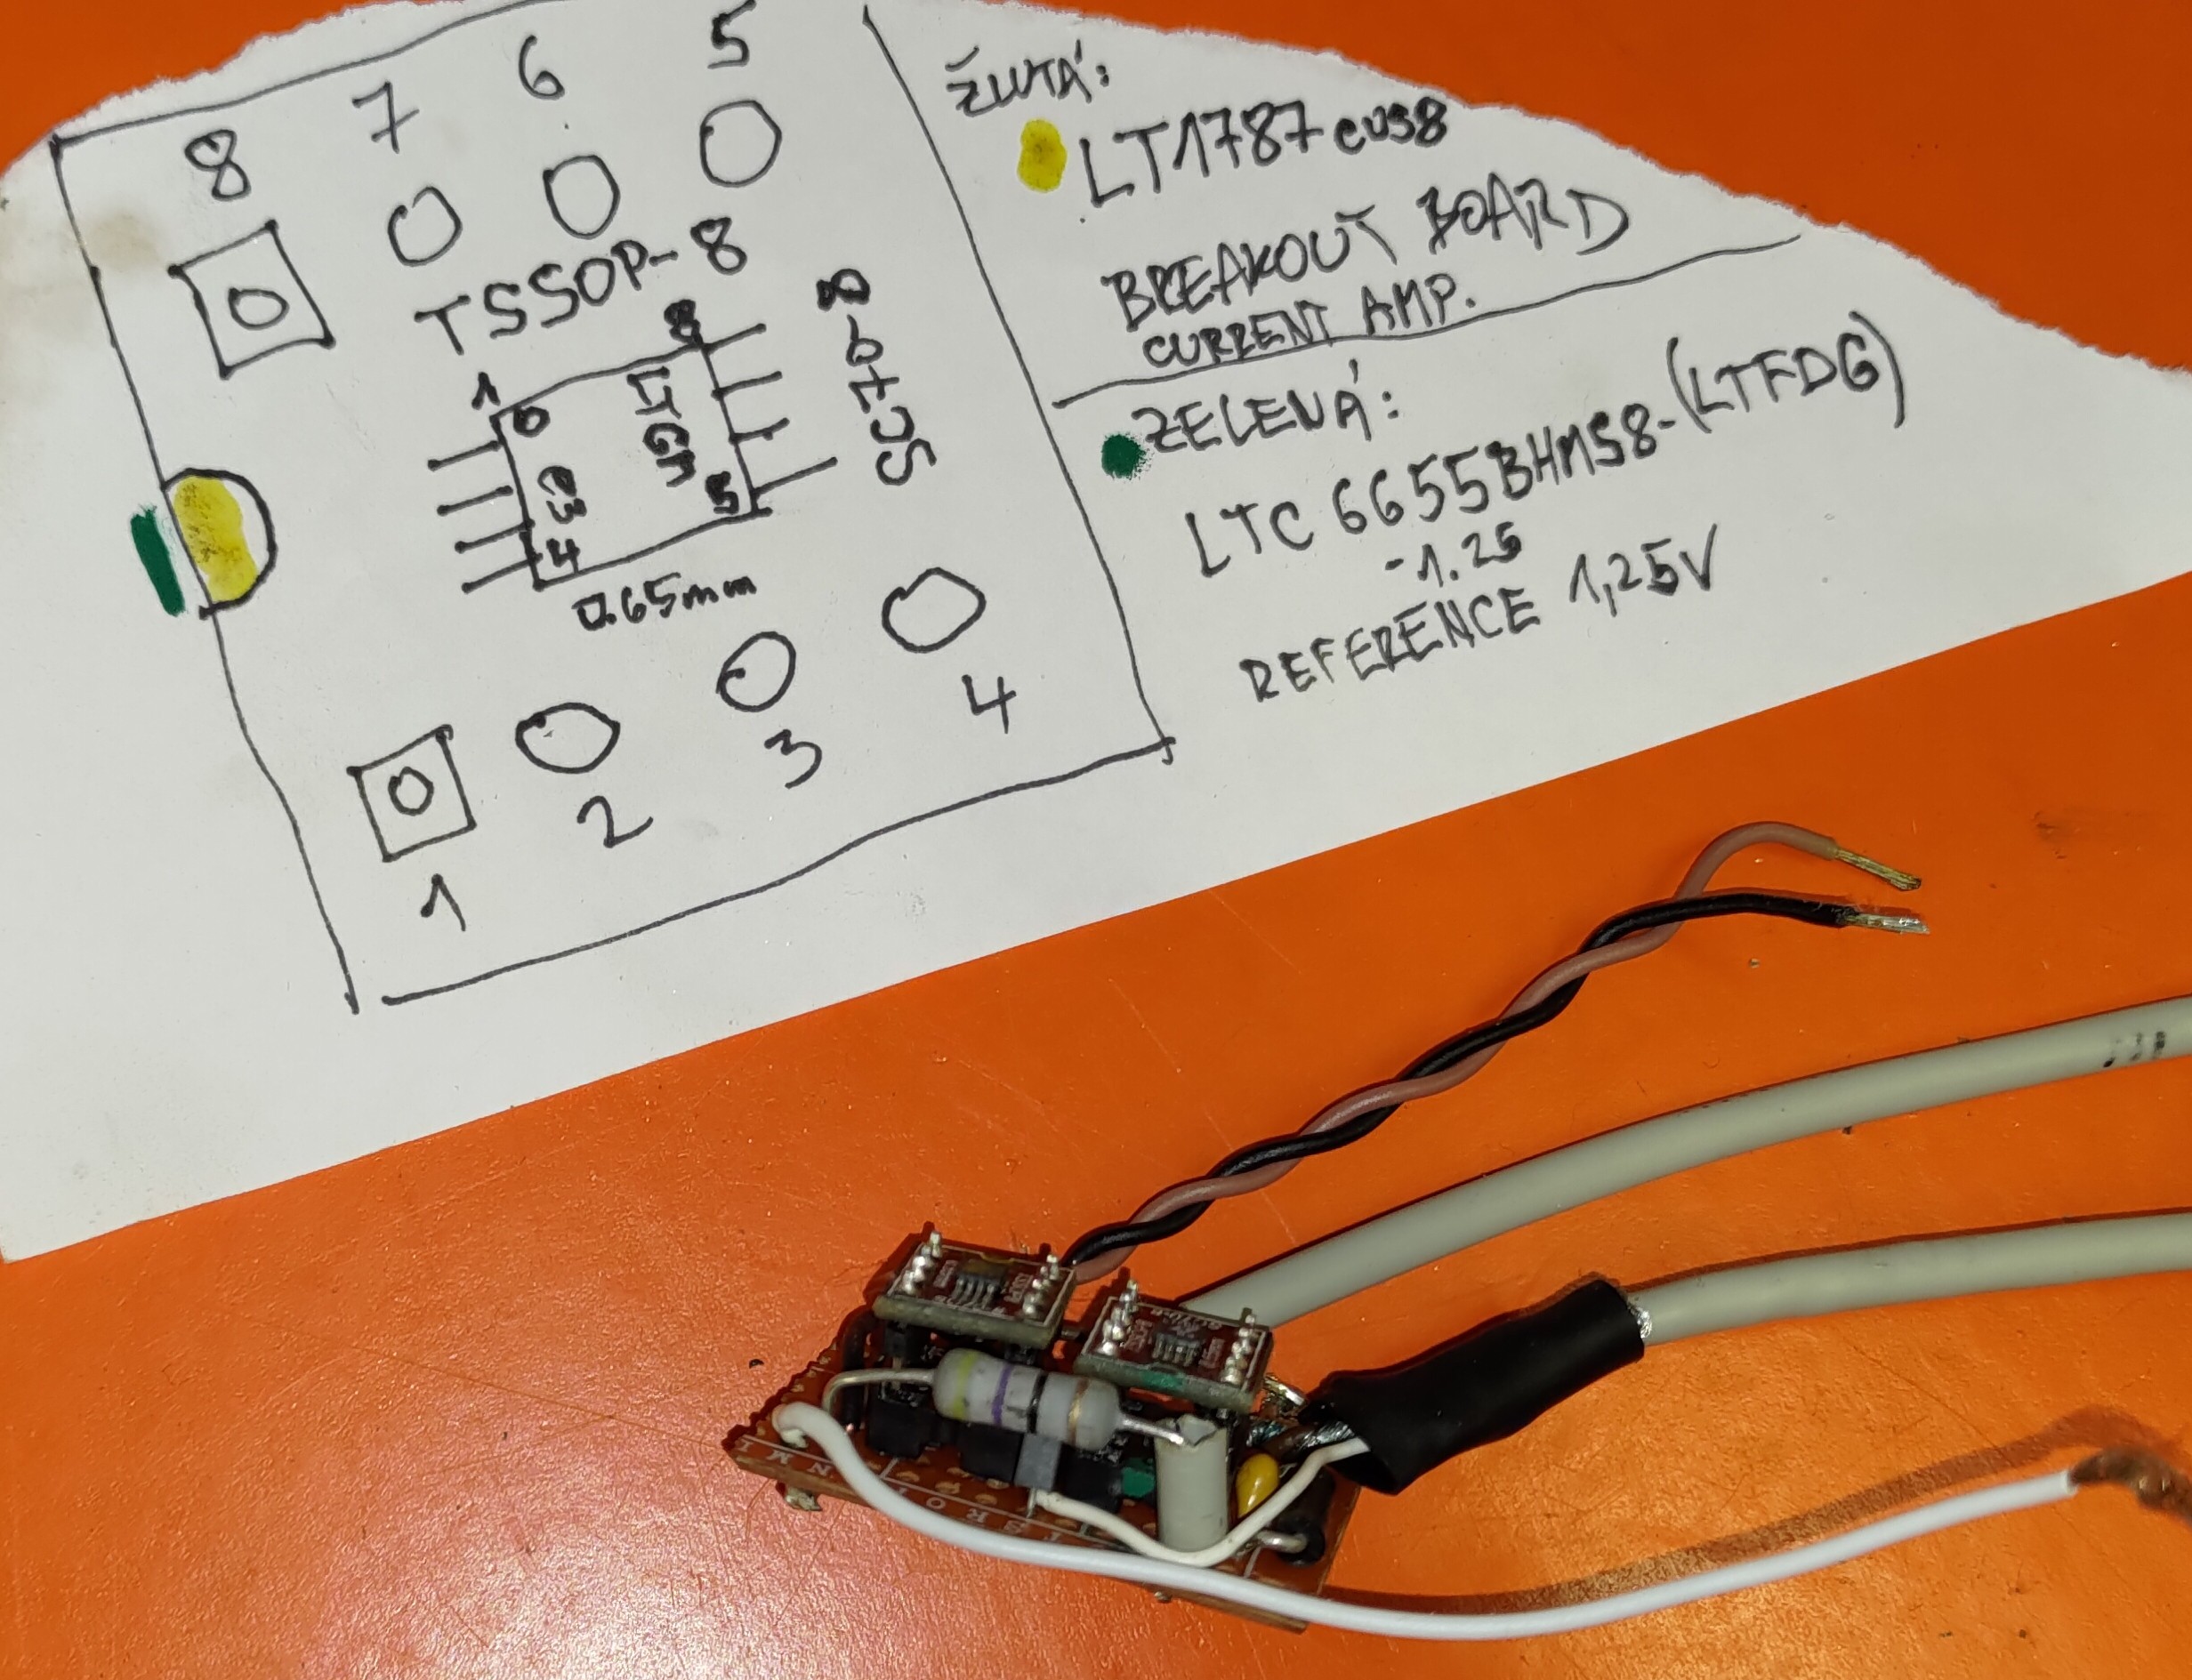 8 7 6 5
TSSOP-8
1 8
LTGM
e3
4 5
0.65mm
1 2 3 4
ŽLUTÁ:
LT1787CUS8
BREAKOUT BOARD
CURRENT AMP.
ZELENÁ:
LTC 6655BHMS8-(LTFDG)
-1.25
REFERENCE 1,25V